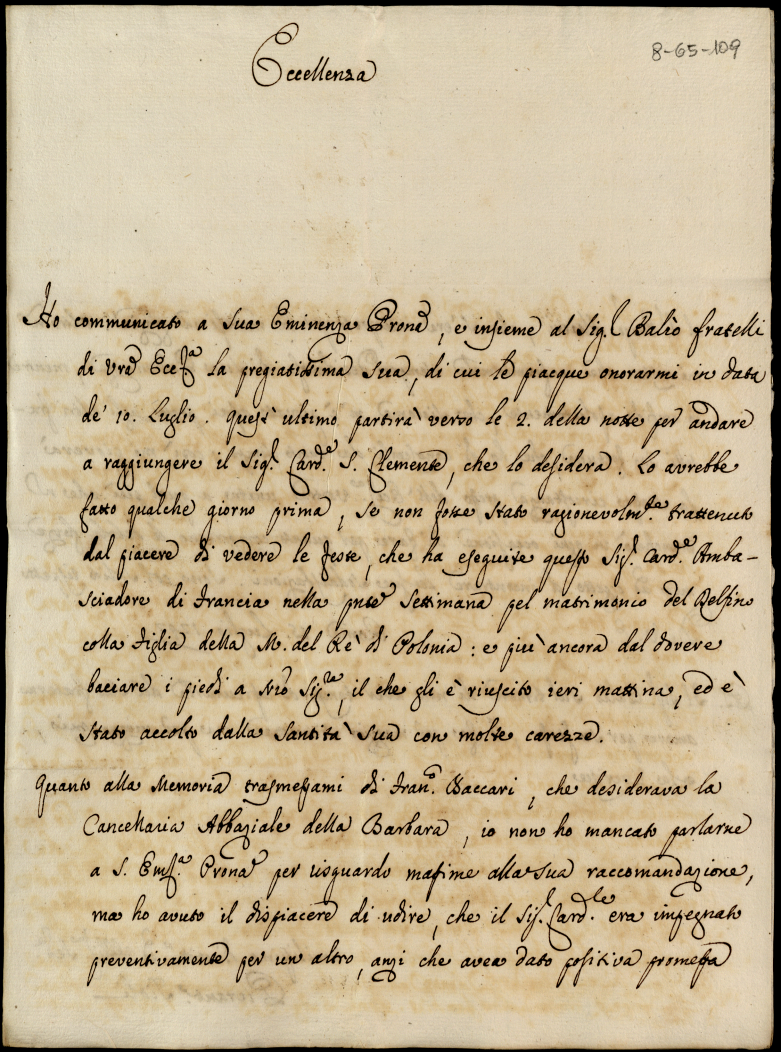 8-65-109
Eccellenza
Ho communicato a Sua Eminenza Prona, e insieme al Sig.r Balio fratelli
di Vra Ecc.za la pregiatissima Sua, di cui le piacque onorarmi in data
de' 10. Luglio. Quest' ultimo partirà verso le 2. della notte per andare
a raggiungere il Sig.r Card.e S. Clemente, che lo desidera. Lo avrebbe
fatto qualche giorno prima, se non fosse stato ragionevolm.te trattenuto
dal piacere di vedere le feste, che ha eseguite questo Sig.r Card.e Amba-
sciadore di Francia nella pnte Settimana pel matrimonio del Delfino
colla Figlia della M. del Rè di Polonia: e più ancora dal dovere
baciare i piedi a Nro Sig.re, il che gli è riuscito ieri mattina, ed è
stato accolto dalla Santità Sua con molte carezze.
Quanto alla Memoria trasmessami di Fran.o Vaccari, che desiderava la
Cancellaria Abbaziale della Barbara, io non ho mancato parlarne
a S. Em.za Prona per risguardo massime alla Sua raccomandazione,
ma ho avuto il dispiacere di udire, che il Sig.r Card.le era impegnato
preventivamente per un altro, anzi che avea dato positiva promessa